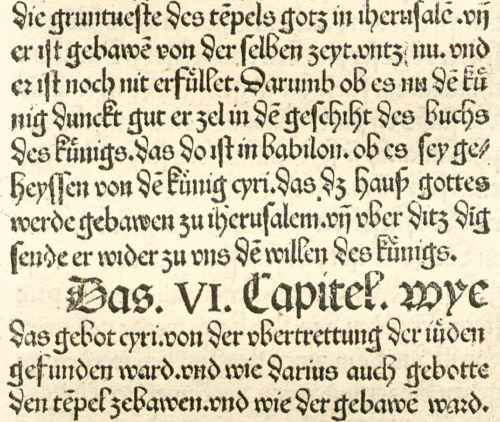 die gruntueste des tēpels gotz in iherusalē.vn̄
er ist gebawen von der selben zeyt.vntz nu. vnd
er ist noch nit erfüllet. Darumb ob es nu dē kü
nig dunckt gut er zel in dē geschiht des buchs
des künigs. das do ist in babilon. ob es sey ge⸗
heyssen von dē künig cyri. das dz hauß gottes
werde gebawen zu iherusalem. vn̄ vber ditz dīg
sende er wider zu vns dē willen des künigs.
Das. VI. Capitel. wye
das gebot cyri. von der vbertrettung der iüden
gefunden ward. vnd wie darius auch gebotte
den tēpel zebawen. vnd wie der gebawē ward.